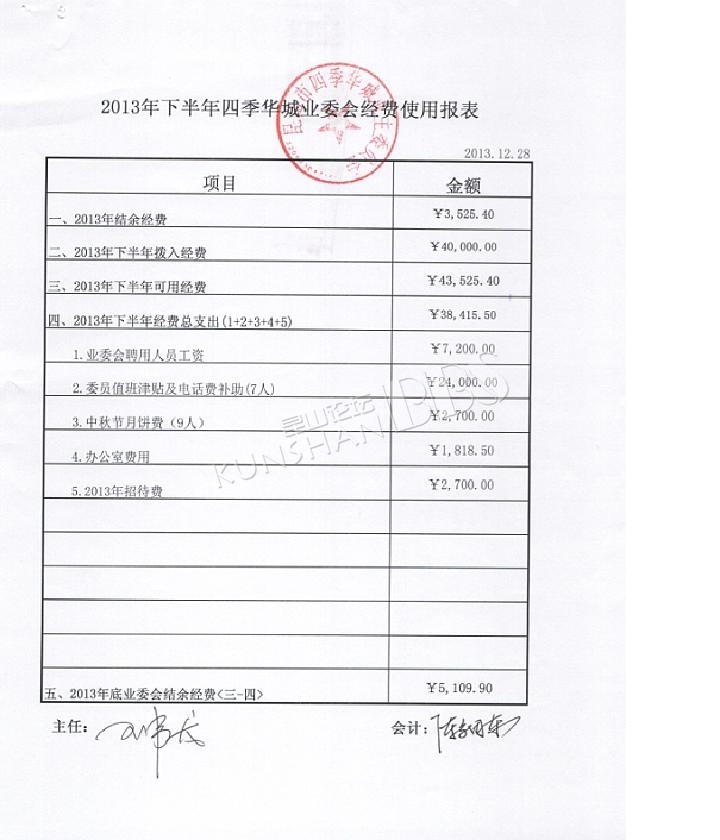 2013年下半年四季华城业委会经费使用报表
2013.12.28
项目 金额
一、2013年结余经费 ¥3,525.40
二、2013年下半年拨入经费 ¥40,000.00
三、2013年下半年可用经费 ¥43,525.40
四、2013年下半年经费总支出(1+2+3+4+5) ¥38,415.50
1.业委会聘用人员工资 ¥7,200.00
2.委员值班津贴及电话费补助(7人) ¥24,000.00
3.中秋节月饼费（9人） ¥2,700.00
4.办公室费用 ¥1,818.50
5.2013年招待费 ¥2,700.00
昆山论坛
KUNSHAN BBS
五、2013年底业委会结余经费<三-四> ¥5,109.90
主任： 会计：